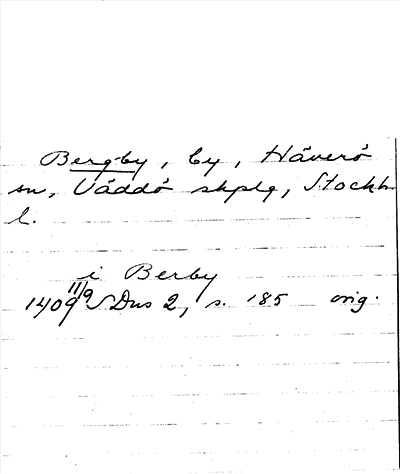 Bergby, by, Häverö
sn, Väddö skplg, Stockh
l.
i Berby
1409 11/9 SDns 2, s. 185 orig.